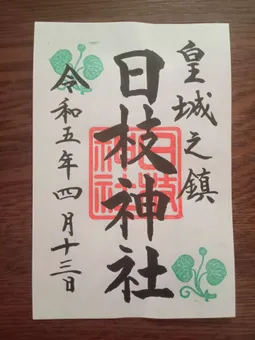 皇城之鎮
日枝神社
令和五年四月十三日
日枝神社